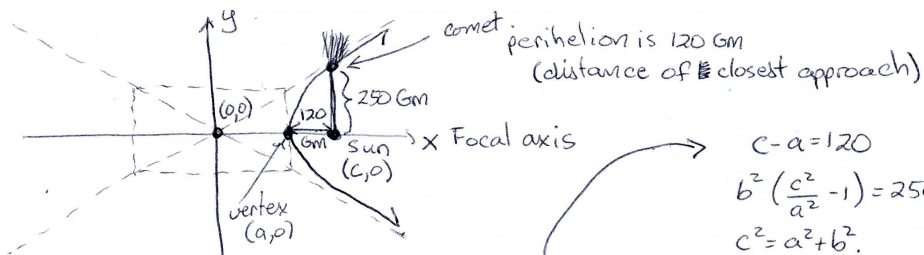 y
comet
perihelion is 120 Gm
(distance of closest approach)
(0,0)
120
Gm
250 Gm
x Focal axis
sun
(c,0)
vertex
(a,0)
c-a=120
b² (c²/a² -1) = 250
c² = a²+b².